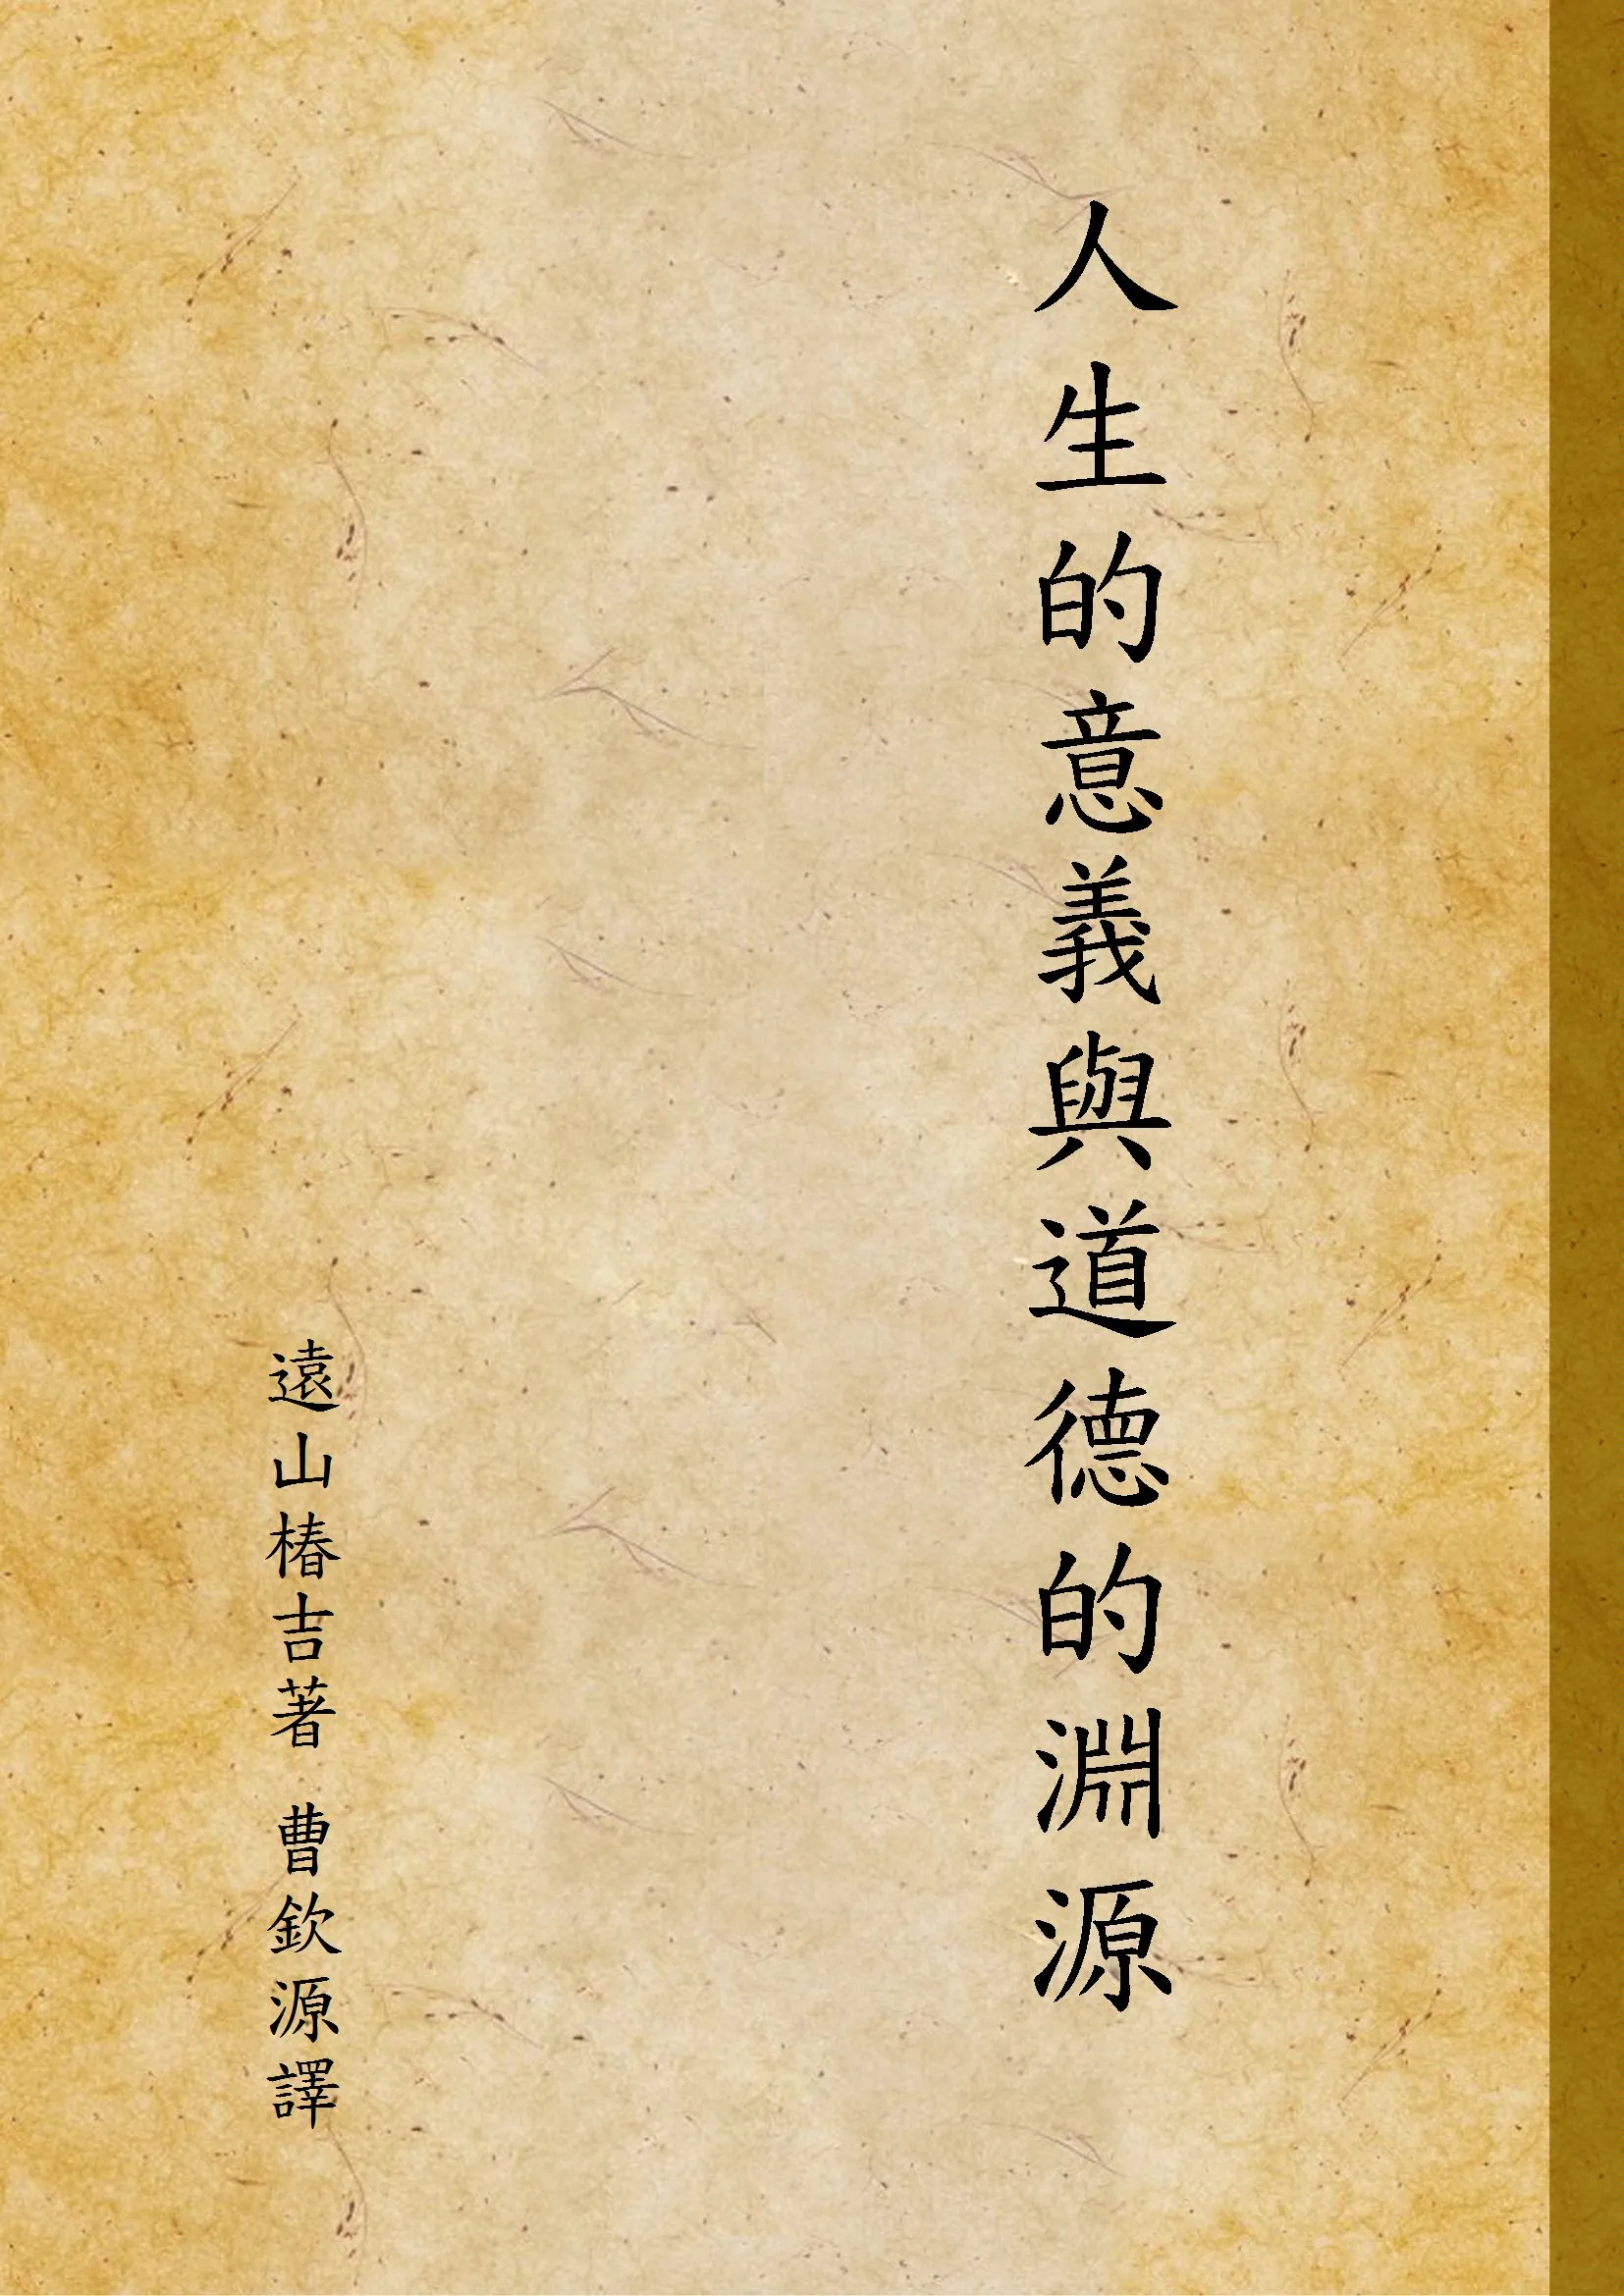 人生的意義與道德的淵源
遠山椿吉著 曹欽源譯